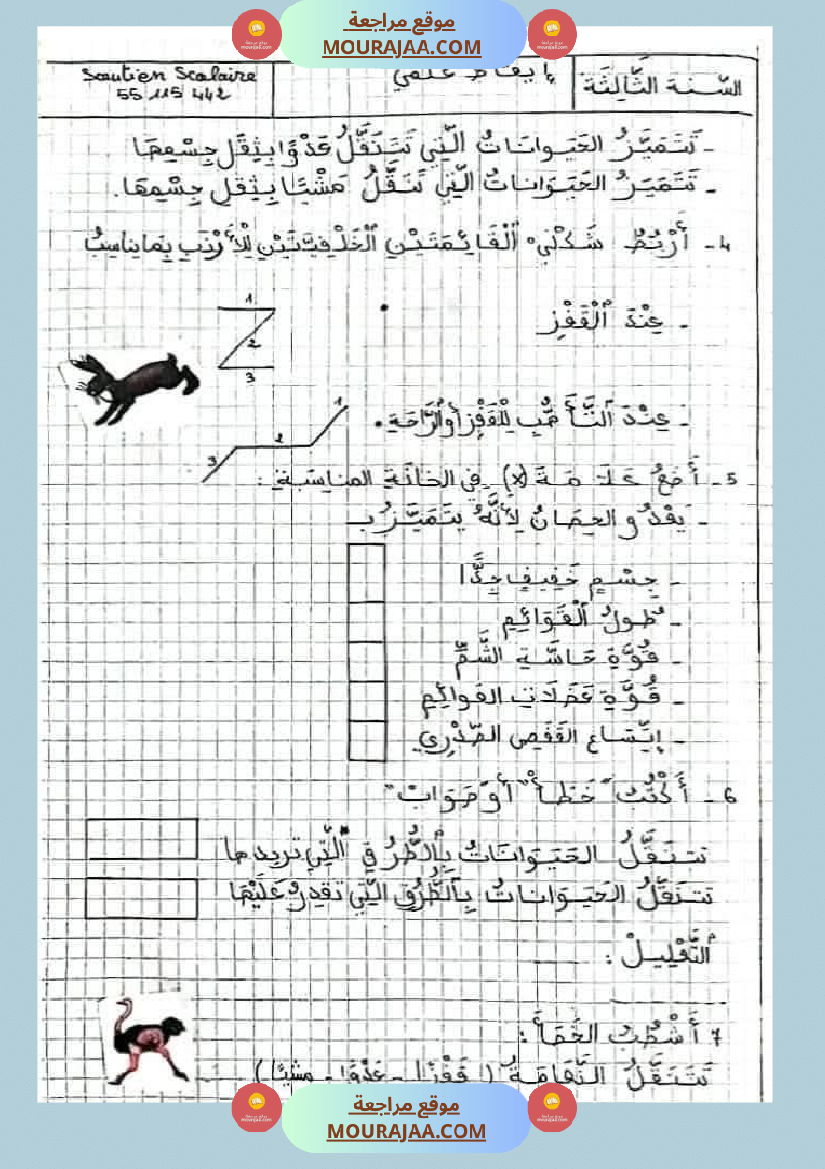 موقع مراجعة
MOURAJAA.COM
السّنة الثّالِثَة
إيقاظ علمي
Soutien Scolaire
55 115 442
- تَتَمَيَّزُ الحَيَوانَاتُ الّتِي تَتَنَقَّلُ عَدْوًا بِثِقَلِ جِسْمِهَا
- تَتَمَيَّزُ الحَيَوَانَاتُ الّتِي تَتَنَقَّلُ مَشْيًا بِثِقَلِ جِسْمِهَا.
4- أَرْبُطُ شَكْلَيْ ٱلْقَائِمَتَيْنِ ٱلْخَلْفِيَّتَيْنِ لِلْأَرْنَبِ بِمَا يناسِبُ
- عِنْدَ ٱلْقَفْزِ
1
2
3
- عِنْدَ ٱلتَّأَهُّبِ لِلْقَفْزِ أَوِ ٱلرَّاحَةِ.
1
2
3
5- أَضَعُ عَلَامَةَ (x) فِي الخَانَةِ المناسِبَةِ:
- يَعْدُو الحِصَانُ لِأَنَّهُ يتَمَيَّزُ بِـ
- جِسْمٍ خَفِيفٍ جِدًّا
- طُولُ ٱلْقَوَائِمِ
- قُوَّةِ حَاسَّةِ الشَّمِّ
- قُوَّةِ عَضَلَاتِ القوائِمِ
- إتِّسَاعِ القَفَصِ الصّدْرِي
6- أَكْتُبُ "خَطَأْ" أَوْ "صَوَابْ"
تتنَقَّلُ الحَيَوَانَاتُ بِٱلطُّرُقِ ٱلَّتِي تريدها
تتَنَقَّلُ الحَيَوَانَاتُ بِٱلطُّرُقِ الَّتِي تقدِرُ عَلَيْهَا
ٱلتَّعْلِيلُ:
7 أَشْطُبُ الخَطَأَ:
تَتَنَقَّلُ النَّعَامَةُ (قَفْزًا - عَدْوًا - مشيًا)
موقع مراجعة
MOURAJAA.COM